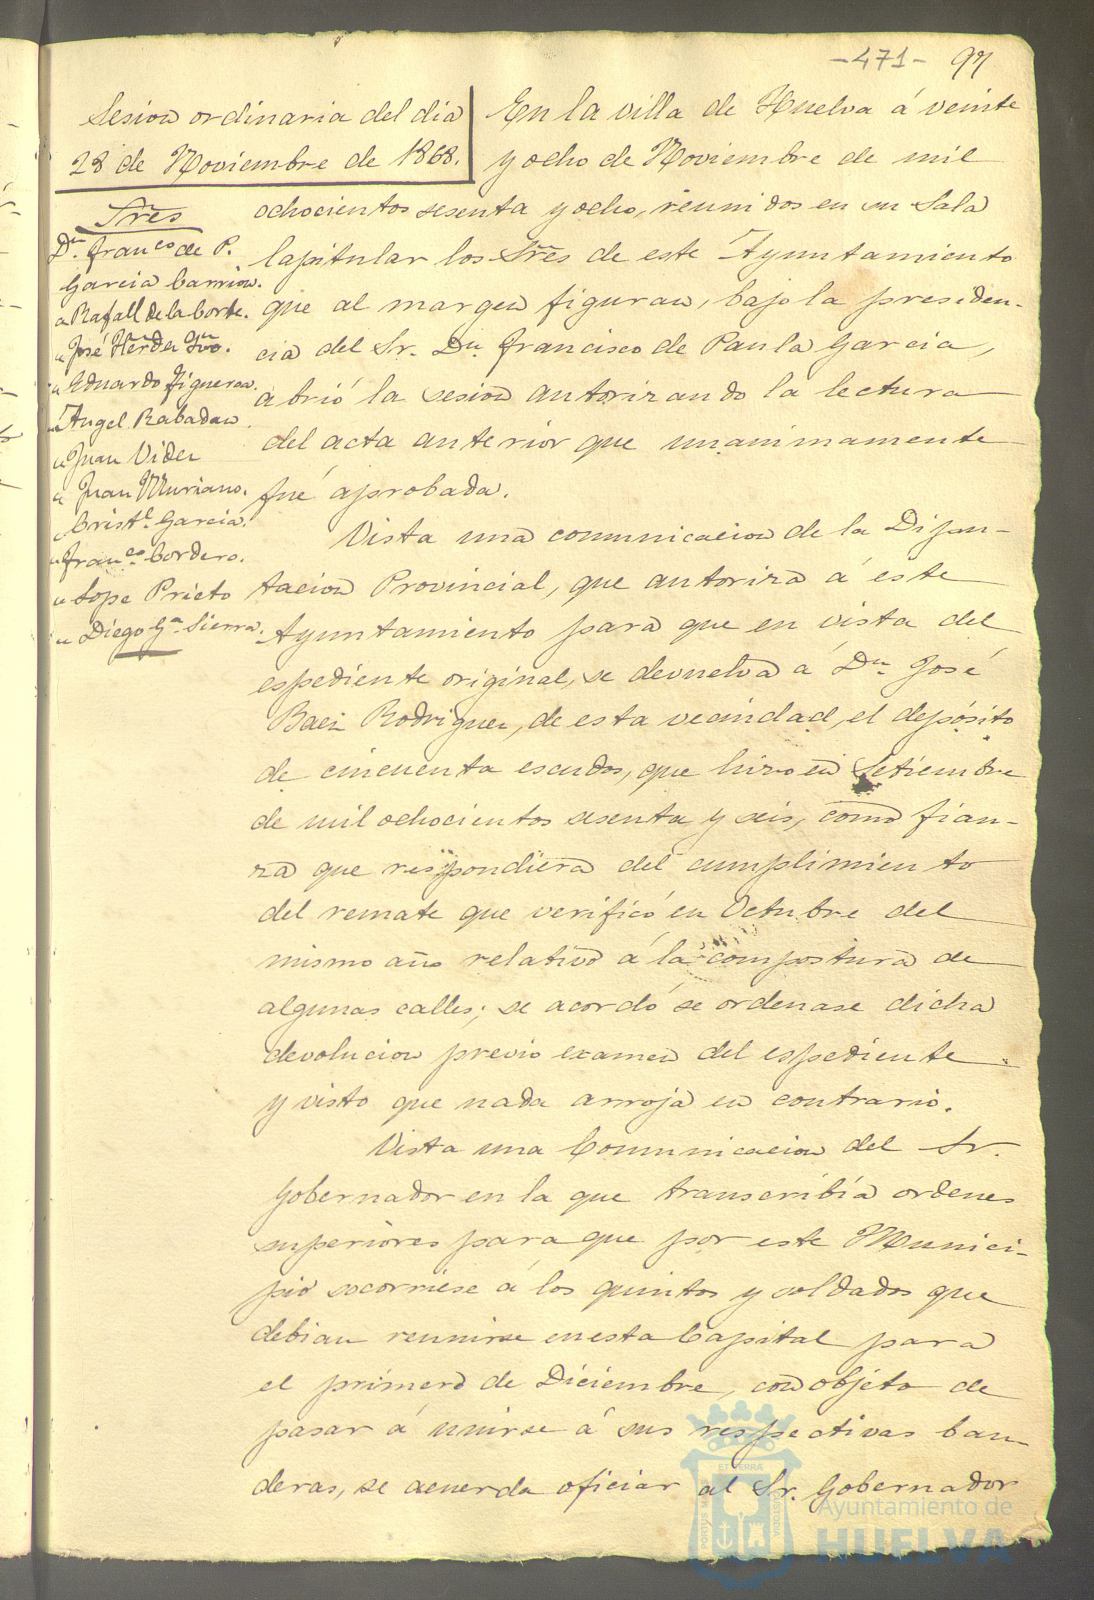 -471- 97
Sesion ordinaria del dia
28 de Noviembre de 1868.
Sres
Dn. Franco de P.
Garcia Carrion.
" Rafall de la Corte.
" José Hernder
" Eduardo Figueroa.
" Angel Rabadan
" Juan Vides
" Juan Muriano.
" Cristl. Garcia.
" Franco Cordero.
" Lope Prieto
" Diego Ga. Sierra.
En la villa de Huelva á veinte
y ocho de Noviembre de mil
ochocientos sesenta y ocho, reunidos en su Sala
Capitular los Sres de este Ayuntamiento
que al margen figuran, bajo la presiden-
cia del Sr. Dn Francisco de Paula Garcia,
abrió la sesion autorizando la lectura
del acta anterior que unanimamente
fué aprobada.
Vista una comunicacion de la Dipu-
tacion Provincial, que autoriza á este
Ayuntamiento para que en vista del
espediente original, se devuelva á Dn. José
Baez Rodriguez, de esta vecindad, el depósito
de cincuenta escudos, que hizo en Setiembre
de mil ochocientos sesenta y seis, como fian-
za que respondiera del cumplimiento
del remate que verificó en Octubre del
mismo año relativo á la compostura de
algunas calles; se acordó se ordenase dicha
devolucion previo examen del espediente
y visto que nada arroja en contrario.
Vista una Comunicacion del Sr.
Gobernador en la que transcribía ordenes
superiores para que por este Munici-
pio socorriese á los quintos y soldados que
debian reunirse en esta Capital para
el primero de Diciembre, con objeto de
pasar á unirse á sus respectivas ban-
deras, se acuerda oficiar al Sr. Gobernador
Ayuntamiento de
HUELVA